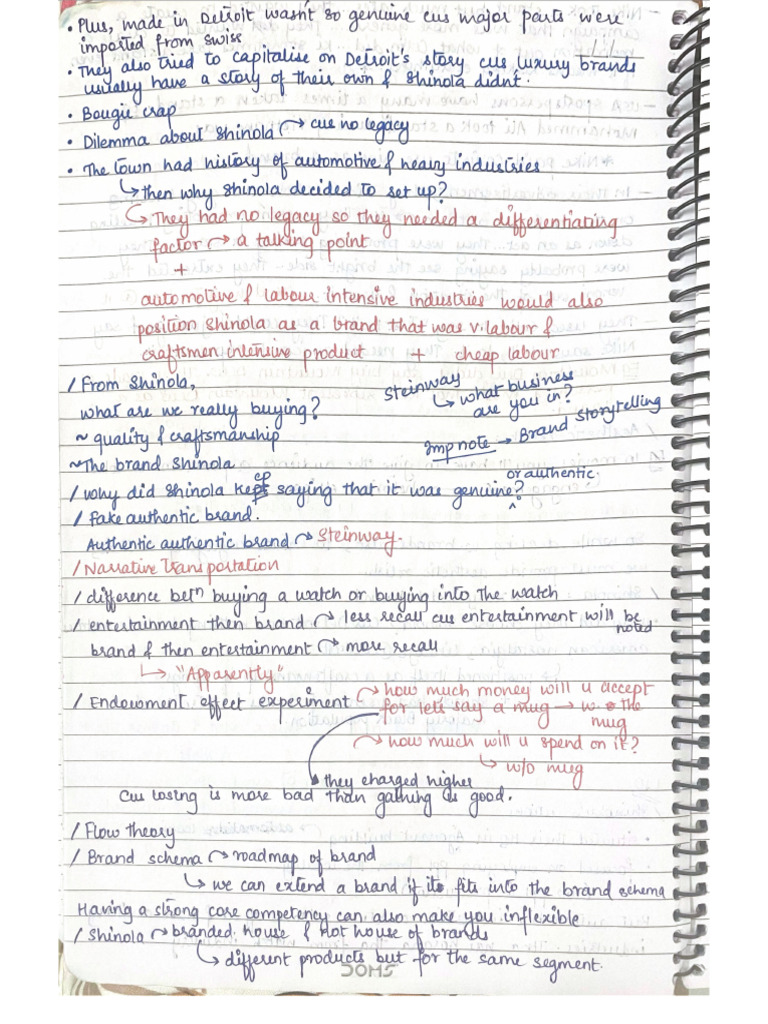 • Plus, made in Detroit wasn't so genuine cus major parts were
imported from swiss
• They also tried to capitalise on Detroit's story cus luxury brands
usually have a story of their own & Shinola didn't.
• Bougie crap
• Dilemma about Shinola → cus no legacy
• The town had history of automotive & heavy industries
↳ then why Shinola decided to set up?
↳ They had no legacy so they needed a differentiating
factor → a talking point
+
automotive & labour intensive industries would also
position Shinola as a brand that was v. labour &
craftsmen intensive product + cheap labour
/ From Shinola,
what are we really buying?
~ quality & craftsmanship
~ The brand Shinola
Steinway
↳ what business
are you in?
Imp note → Brand Storytelling
/ why did Shinola keep saying that it was genuine?
or authentic.
/ fake authentic brand.
Authentic authentic brand → Steinway.
/ Narrative Transportation
/ difference betn buying a watch or buying into the watch
/ entertainment then brand → less recall cus entertainment will be
noted
brand & then entertainment → more recall
↳ "Apparently"
/ Endowment effect experiment → how much money will u accept
for let's say a mug → w. the
mug
→ how much will u spend on it?
↳ w/o mug
they charged higher
Cus losing is more bad than gaining is good.
/ Flow theory
/ Brand schema → roadmap of brand
↳ we can extend a brand if it fits into the brand schema
Having a strong core competency can also make you inflexible
/ Shinola → branded house & not house of brands
↳ different products but for the same segment.
DOMS